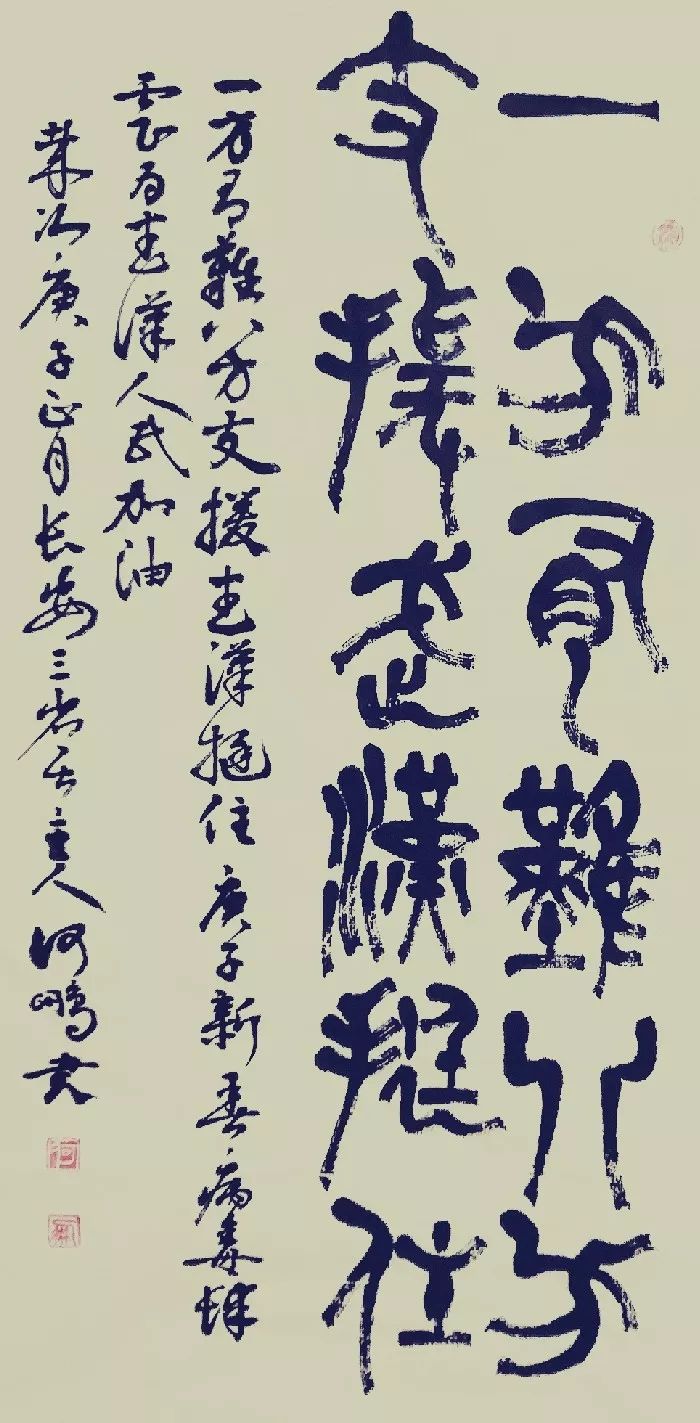 一方有難八方
支援武漢挺住
一方有難八方支援武漢挺住庚子新春病毒肆
虐為武漢人民加油
歲次庚子正月长安三省居主人何鵬書